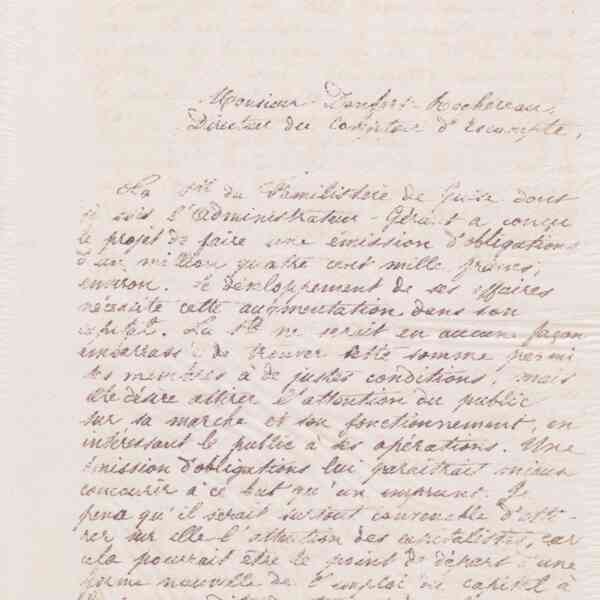 Monsieur Denfert-Rochereau,
Directeur du Comptoir d'Escompte,
La Sté du Familistère de Guise dont
je suis l'Administrateur-Gérant a conçu
le projet de faire une émission d'obligations
d'un million quatre cent mille francs,
environ. Le développement de ses affaires
nécessite cette augmentation dans son
capital. La Sté ne serait en aucune façon
embarrassée de trouver cette somme parmi
ses membres à de justes conditions, mais
elle désire attirer l'attention du public
sur sa marche et son fonctionnement, en
intéressant le public à ses opérations. Une
émission d'obligations lui paraîtrait mieux
concourir à ce but qu'un emprunt. Je
pense qu'il serait surtout convenable d'atti-
rer sur elle l'attention des capitalistes, car
cela pourrait être le point de départ d'une
forme nouvelle de l'emploi du capital à